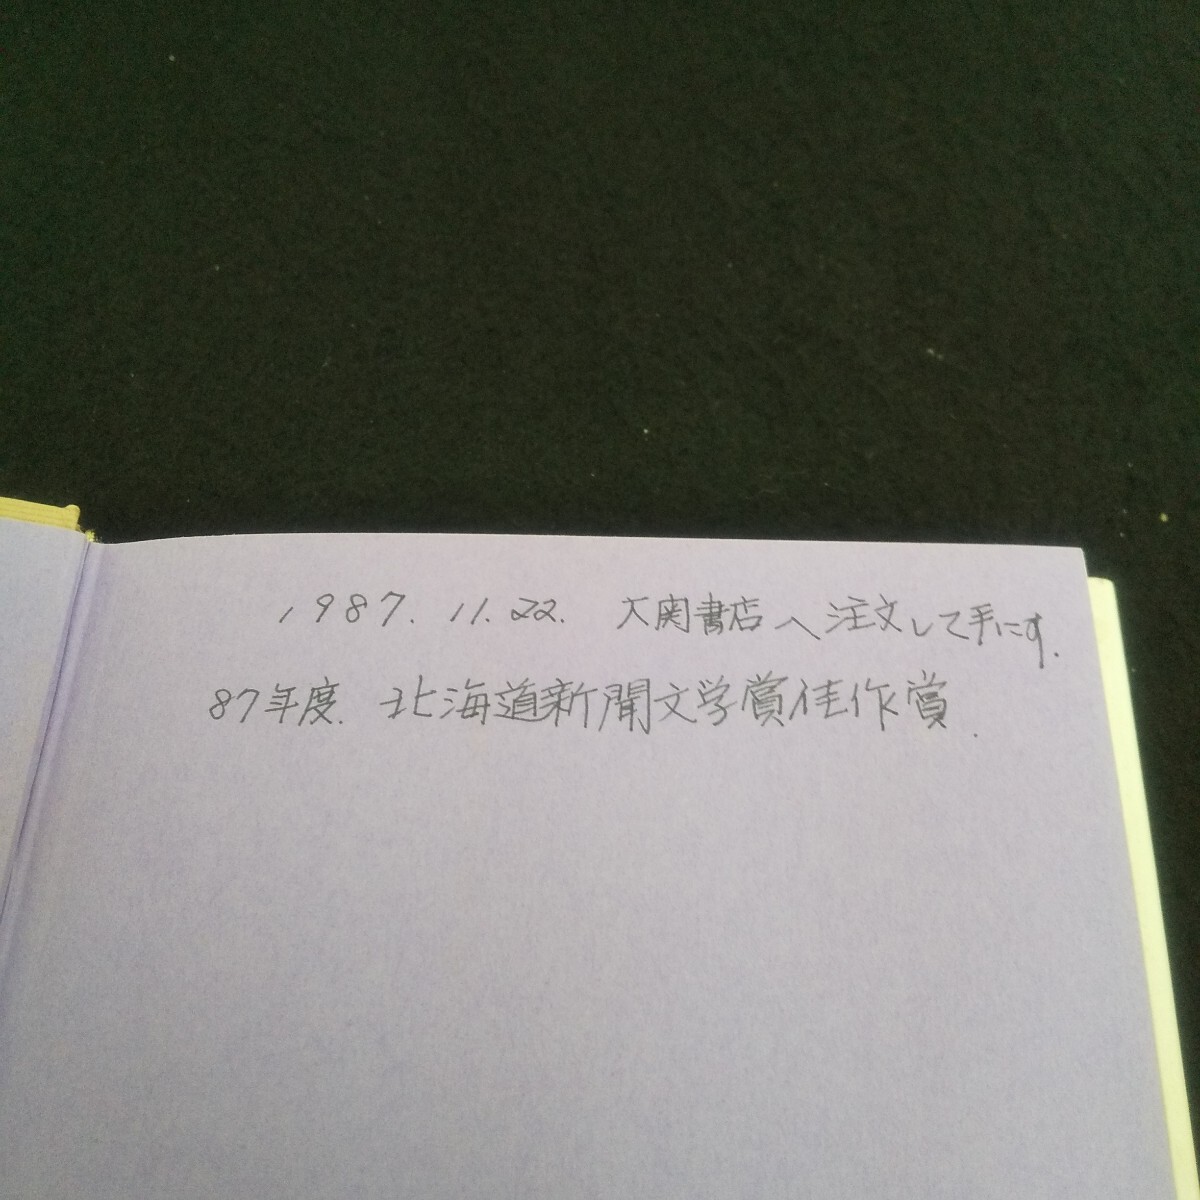 1987. 11. 22. 大関書店へ注文して手にす.
87年度. 北海道新聞文学賞佳作賞.